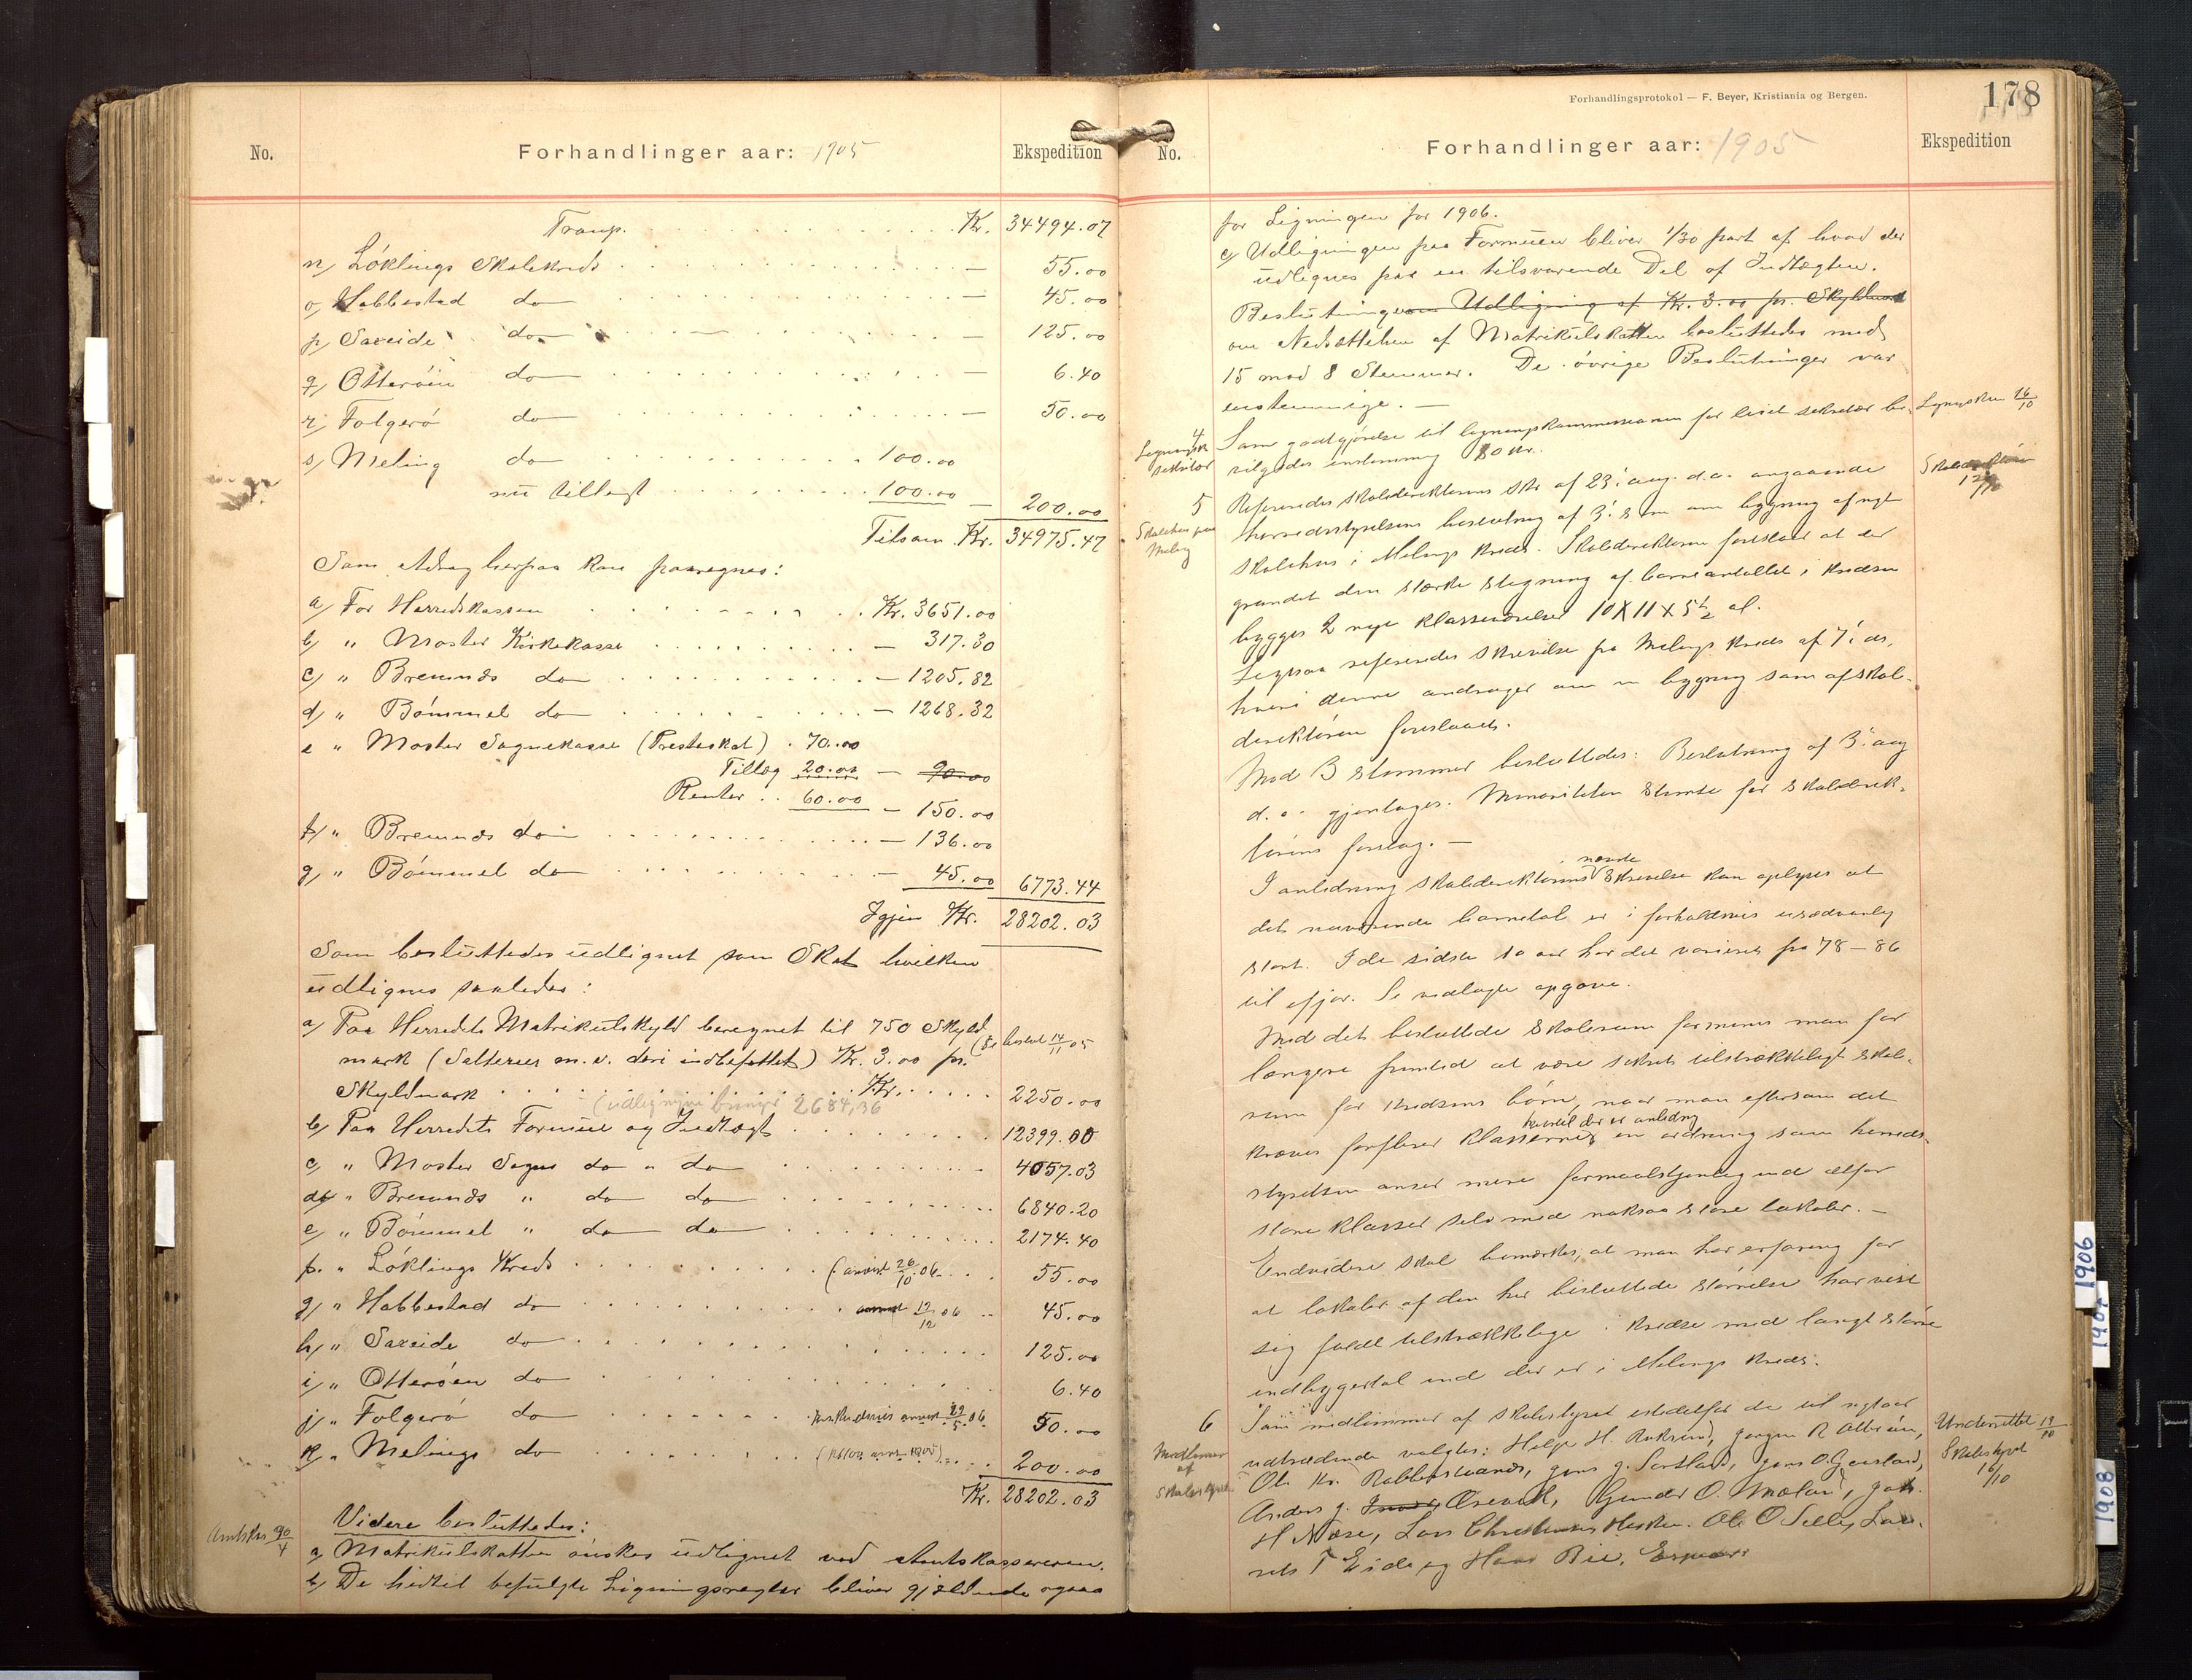 No.
Forhandlinger aar: 1905
Ekspedition
Transp. Kr. 34494.07
n/ Løklings Skolekreds — 55.00
o/ Habbestad do — 45.00
p/ Sæeide do — 125.00
q/ Otterøen do — 6.40
r/ Folgerø do — 50.00
s/ Meling do 100.00
nu tillagt 100.00 — 200.00
Tilsam. Kr. 34975.47
Som Afdrag herpaa kan paaregnes:
a/ For Herredskassen Kr. 3651.00
b/ " Moster Kirkekasse — 317.30
c/ " Bremnæs do — 1205.82
d/ " Bømmel do — 1268.32
e " Moster Sognekasse (Presteskat) 70.00
Tillæg 20.00 — 90.00
Renter 60.00 — 150.00
f/ " Bremnæs do — 136.00
g/ " Bømmel do — 45.00 6773.44
Igjen Kr. 28202.03
Som besluttedes udlignet som Skat hvilken
udlignes saaledes:
a/ Paa Herredets Matrikulskyld beregnet til 750 Skyld
mark (Salterier m.v. deri indbefattet) Kr. 3.00 pr. (Se beslut 14/11 05
Skyldmark Kr. 2250.00
(udligningen bringer 2684,36
b/ Paa Herredets Formue og Indtægt 12399.00
c/ " Moster Sogns do " do 4057.03
d/ " Bremnæs " do do 6840.20
e/ " Bømmel " do do 2174.40
f. " Løklings Kreds (anvist 26/10 06 55.00
g/ " Habbestad do anvist 12/12 06 45.00
h/ " Sæeide do 125.00
i/ " Otterøen do 6.40
j/ " Folgerø do anvist 29/5 06 50.00
k/ " Melings do 200.00
Kr. 28202.03
Videre besluttedes:
Amtskas 30/4
a/ Matrikulskatten ønskes udlignet ved Amtskassereren.
b/ De hidtil befulgte Ligningsregler bliver gjældende ogsaa
Forhandlingsprotokol — F. Beyer, Kristiania og Bergen.
178
No.
Forhandlinger aar: 1905
Ekspedition
for Ligningen for 1906.
c/ Udligningen paa Formuen bliver 1/30 part af hvad der
udlignes paa en tilsvarende Del af Indtægten.
Beslutningen om Udligning af Kr. 3.00 pr. Skyldmark
om Nedsættelsen af Matrikulskatten besluttedes med
15 mod 8 Stemmer. De øvrige Beslutninger var
enstemmige. —
4 Som godtgjørelse til ligningskommissionen for leiet sekretær be-
Lignings sekretær
vilgedes enstemmig 80 Kr.
16/10
5 Refereredes Skoledirektørens skr af 23' aug. d.a. angaaende
Skolehus paa Meling
herredsstyrelsens beslutning af 3' s m om bygning af nyt
skolehus i Melings kreds. Skoledirektøren foreslaar at der
grundet den stærke stigning af barneantallet i kredsen
bygges 2 nye klasseværelser 10 X 11 X 5½ al.
Ligesaa refereredes skrivelse fra Melings kreds af 7' ds,
hvori denne andrager om en bygning som af skole-
direktøren foreslaaet.
Mod 3 stemmer besluttedes: Beslutning af 3' aug
d.a. gjentages. Minoriteten stemte for skoledirek-
tørens forslag. —
I anledning skoledirektørens nævnte skrivelse kan oplyses at
det nuværende barnetal er i forholdsvis usædvanlig
stort. I de sidste 10 aar har det varieret fra 78 — 86
til ifjor. Se vedlagte opgave.
Med det besluttede skolerum formener man for
længere fremtid at være sikret tilstrækkeligt skole-
rum for kredsens børn, naar man eftersom det
kræves forfleser klasserne hvortil der er anledning en ordning som herreds-
styrelsen anser mere formaalstjenlig end altfor
store klasser selv med noksaa store lokaler. —
Endvidere skal bemærkes, at man har erfaring for
at lokaler af den her besluttede størrelse har vist
sig fuldt tilstrækkelige i kredse med langt større
indbyggertal end der er i Melings kreds.
6 Som medlemmer af skolestyret istedetfor de til nytaar
Medlemer af Skolestyret
udtrædende valgtes: Helge H. Jørgen R Otterøen,
Underrettet 19/10
Ole Kr. Rabbersvands,
Skolestyret 16/10
Anders J. Gunder O.
H Næse, Lars Ole O Selle,
T Eide og Hans Bie,
1906
1908